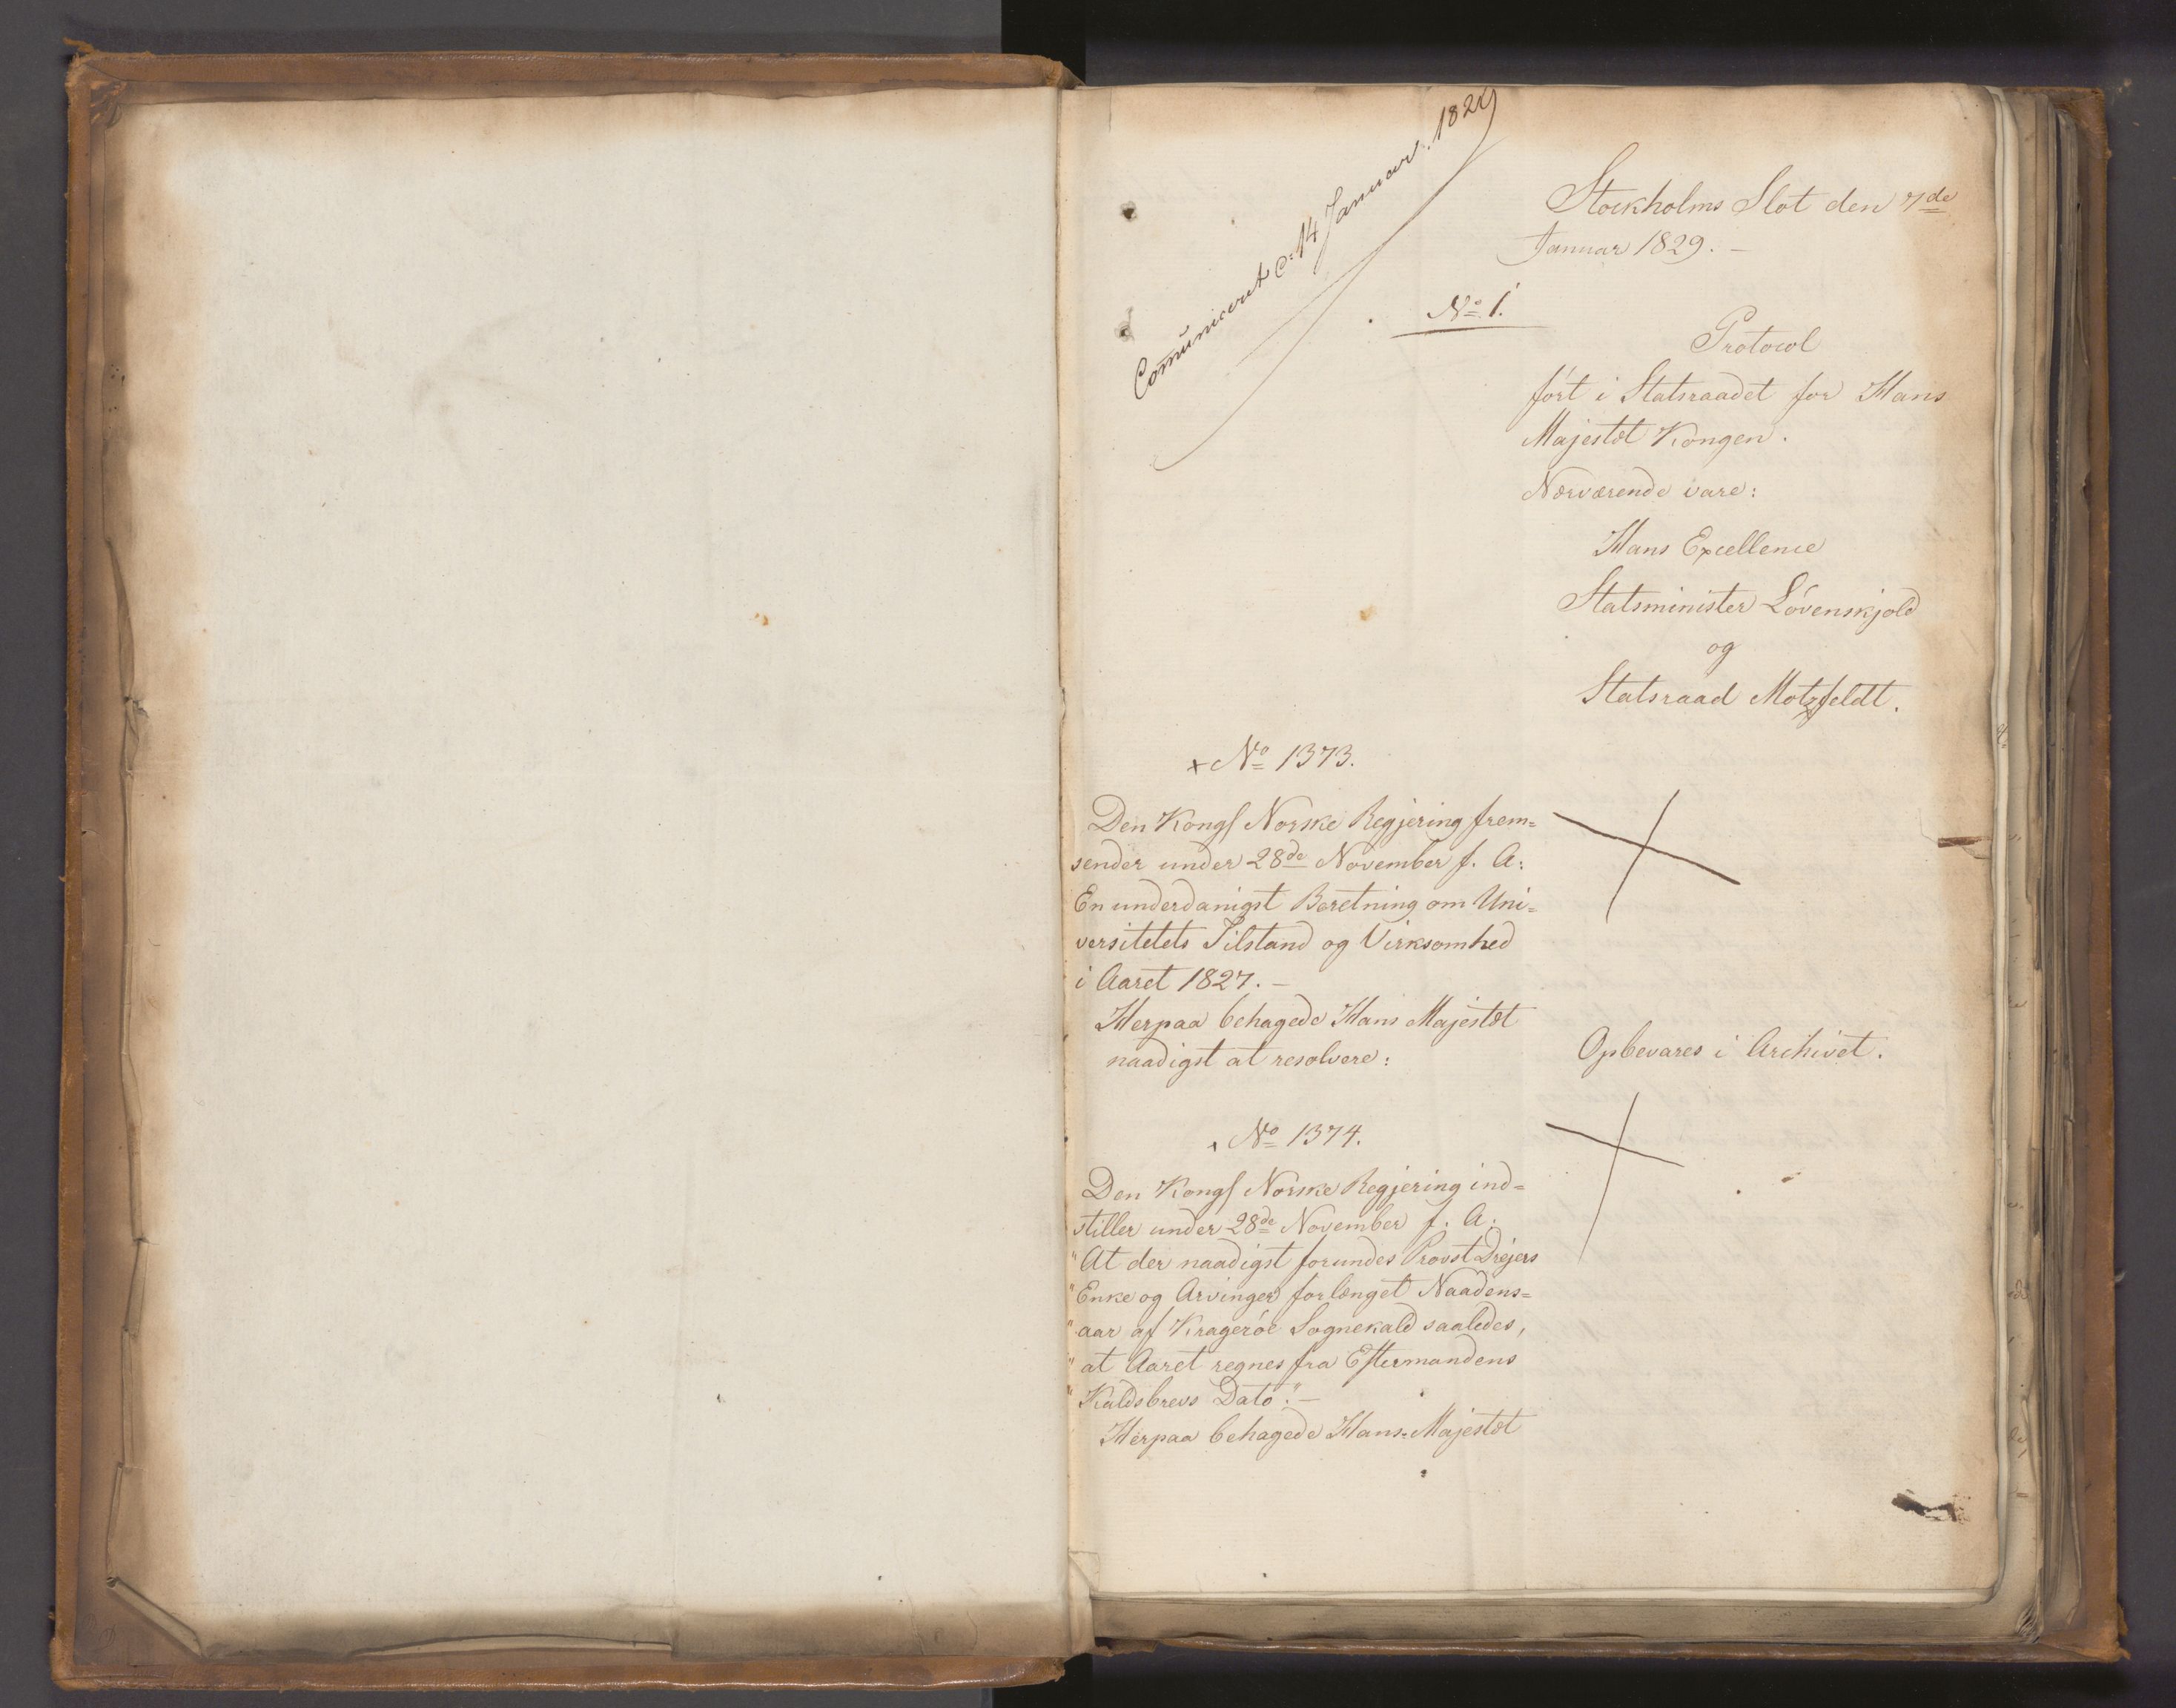 Com̄uniceret d: 14 Januar. 1829
Stockholms Slot den 7de
Januar 1829. –
No 1.
Protocol
ført i Statsraadet for Hans
Majestæt Kongen.
Nærværende vare:
Hans Excellence
Statsminister Løvenskjold
og
Statsraad Motzfeldt.
+ No 1373.
Den Kongl Norske Regjering frem=
sender under 28de November f. A:
En underdanigst Beretning om Uni=
versitetets Tilstand og Virksomhed
i Aaret 1827. –
Herpaa behagede Hans Majestæt
naadigst at resolvere:
Opbevares i Archivet.
No 1374.
Den Kongl Norske Regjering ind=
stiller under 28de November f. A:
"At der naadigst forundes Provst Drejers
"Enke og Arvinger forlænget Naadens=
"aar af Kragerøe Sognekald saaledes,
"at Aaret regnes fra Eftermandens
"Kaldsbrevs Dato". –
Herpaa behagede Hans Majestæt